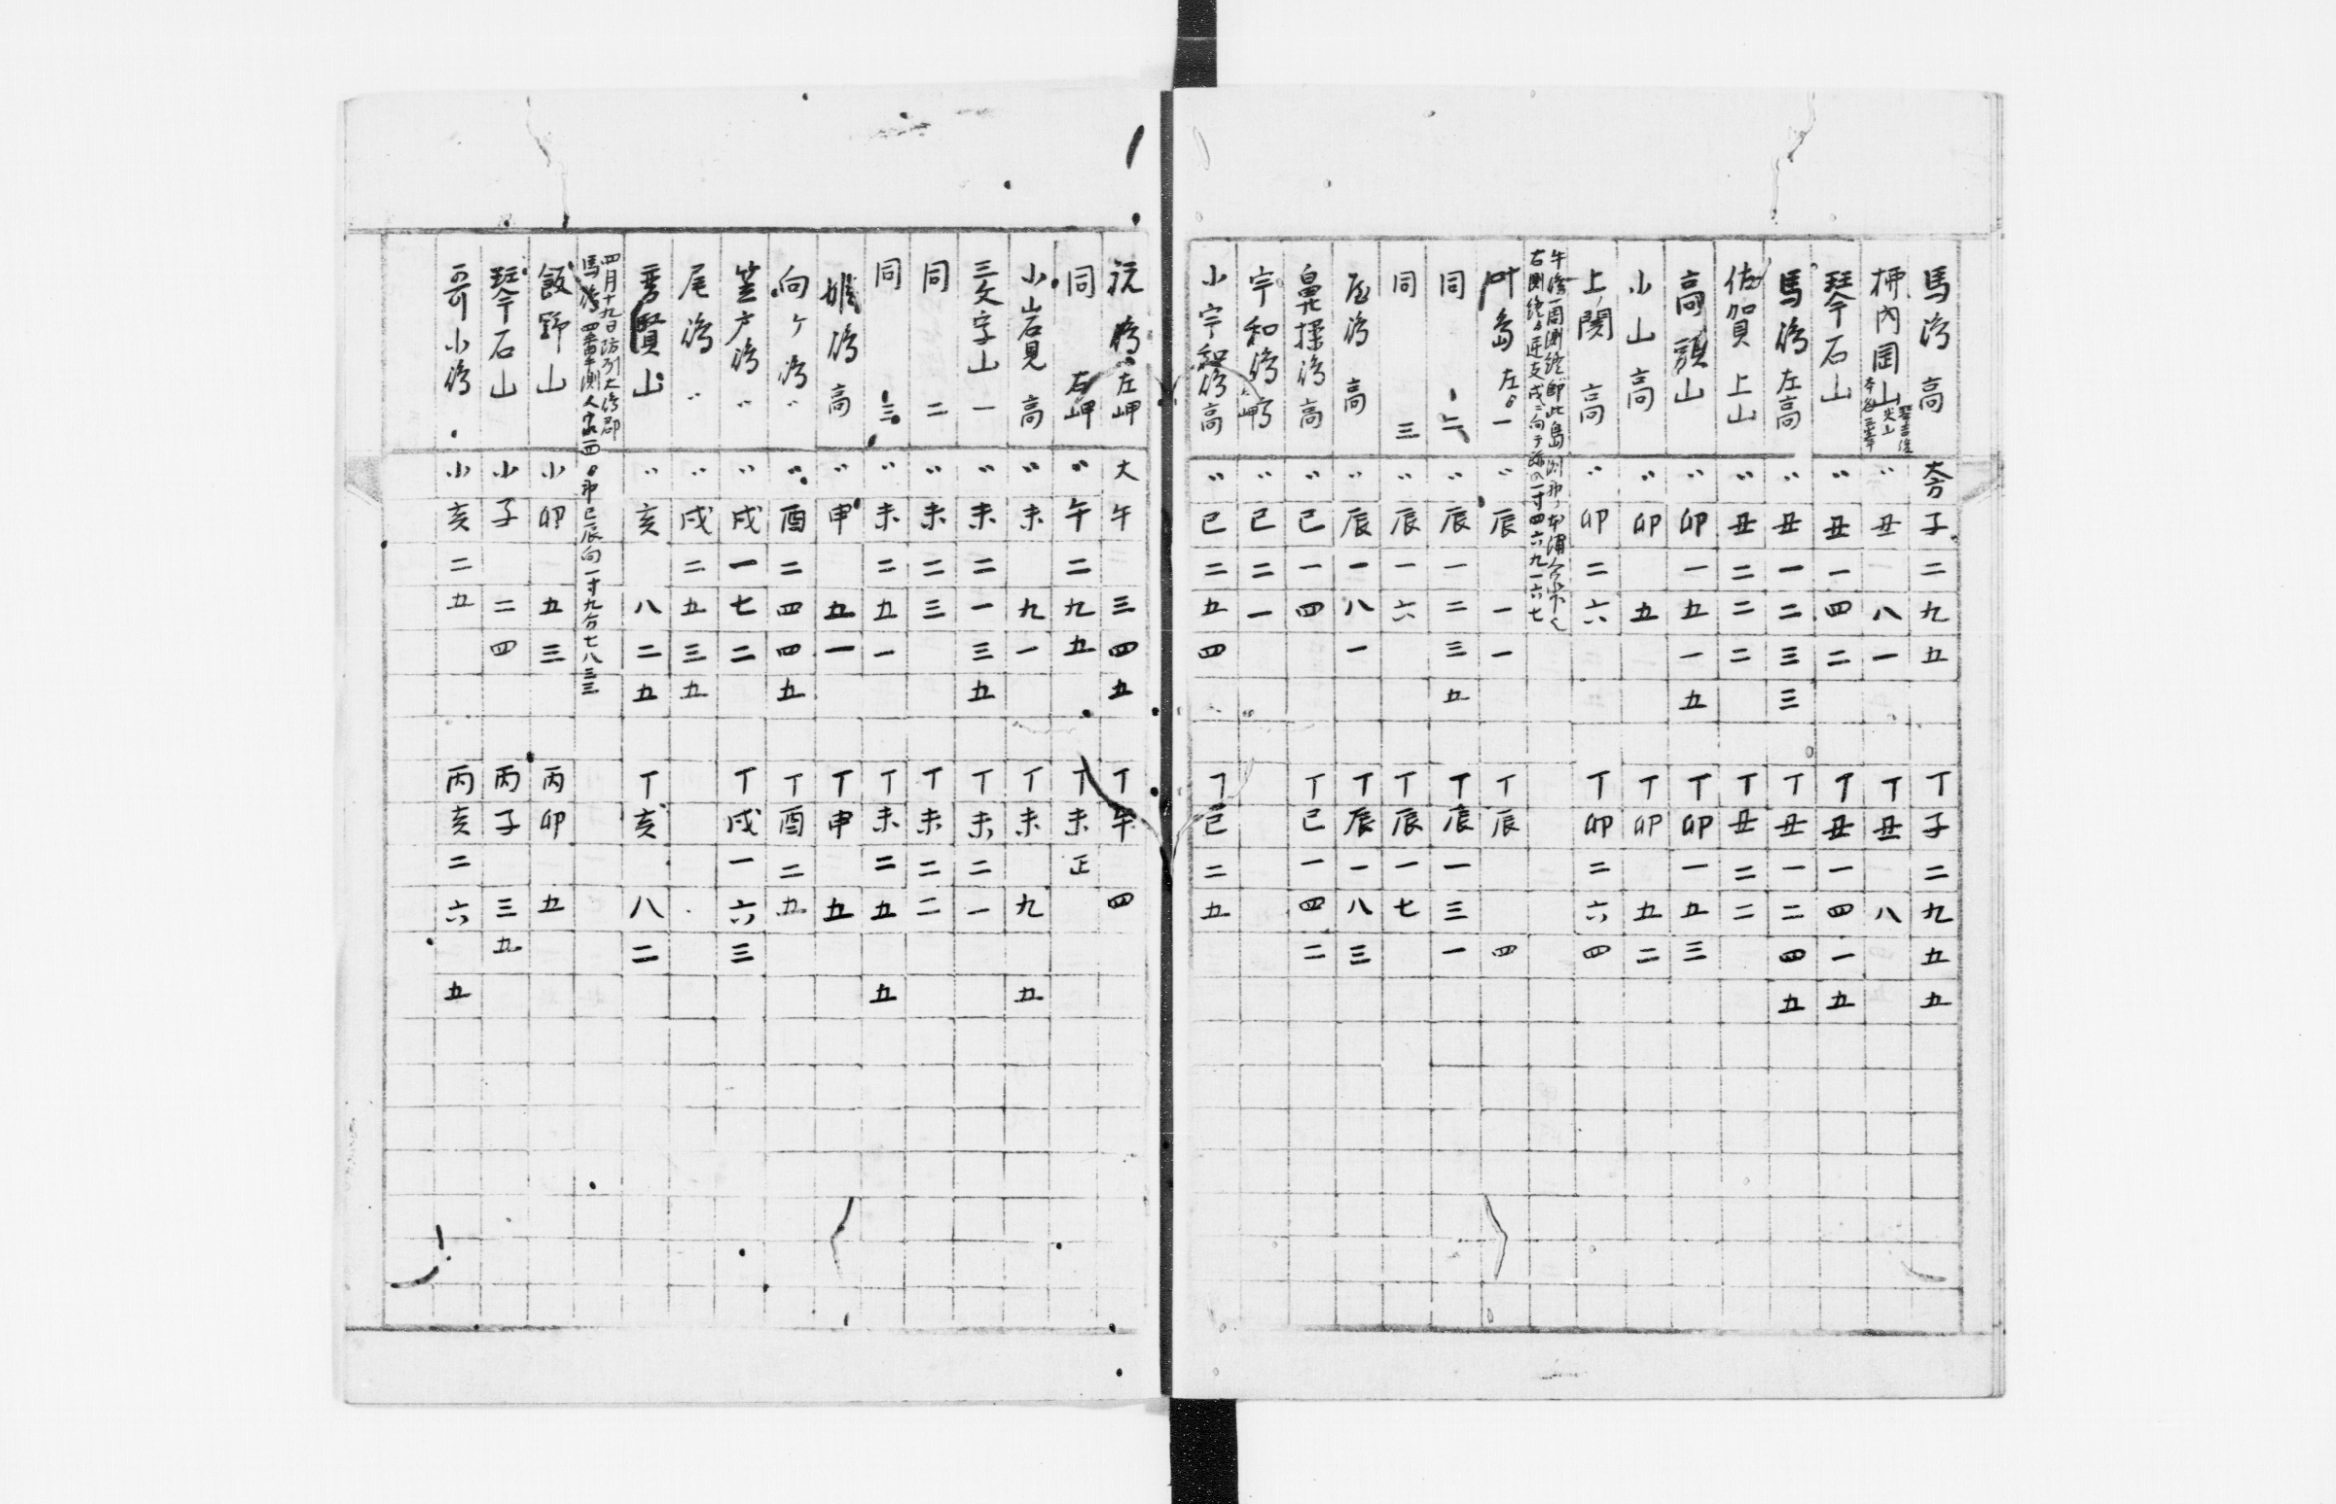 馬島 高 大方 子 二 九 五 丁 子 二 九 五 五
柳内岡山 〃 丑 八 一 丁 丑 八
琴石山 〃 丑 一 四 二 丁 丑 一 四 一 五
馬島 左高 〃 丑 一 二 三 三 丁 丑 一 二 四 五
佐賀 上山 〃 丑 二 二 二 丁 丑 二 二
高頭山 〃 卯 一 五 一 五 丁 卯 一 五 三
小山 高 〃 卯 五 丁 卯 五 二
上ノ関 高 〃 卯 二 六 丁 卯 二 六 四
午島一周測終即此島測印
右測終 迄支戌ニ向テ 一寸四六九一六七
叶島 左 一 〃 辰 一 一 丁 辰 四
同 二 〃 辰 一 二 三 五 丁 辰 一 三 一
同 三 〃 辰 一 六 丁 辰 一 七
島 高 〃 辰 一 八 一 丁 辰 一 八 三
鼻操島 高 〃 巳 一 四 丁 巳 一 四 二
宇和島 岬 〃 巳 二 一
小宇和島 高 〃 巳 二 五 四 丁 巳 二 五
祝島 左岬 大 午 三 四 五 丁 午 四
同 右岬 〃 午 二 九 五 丁 未 正
小山石見 高 〃 未 九 一 丁 未 九 五
三文字山 一 〃 未 二 一 三 五 丁 未 二 一
同 二 〃 未 二 三 丁 未 二 二
同 三 〃 未 二 五 一 丁 未 二 五 五
姫島 高 〃 申 五 一 丁 申 五
向ヶ島 〃 〃 酉 二 四 四 五 丁 酉 二 五
笠戸島 〃 〃 戌 一 七 二 丁 戌 一 六 三
尾島 〃 〃 戌 二 五 三 五
秀賢山 〃 亥 八 二 五 丁 亥 八 二
四月十九日防州大島郡
馬島 四番手測人家西 印巳辰向一寸九分七八三三
飯野山 小 卯 五 三 丙 卯 五
琴石山 小 子 二 四 丙 子 三 五
哥小島 小 亥 二 五 丙 亥 二 六 五